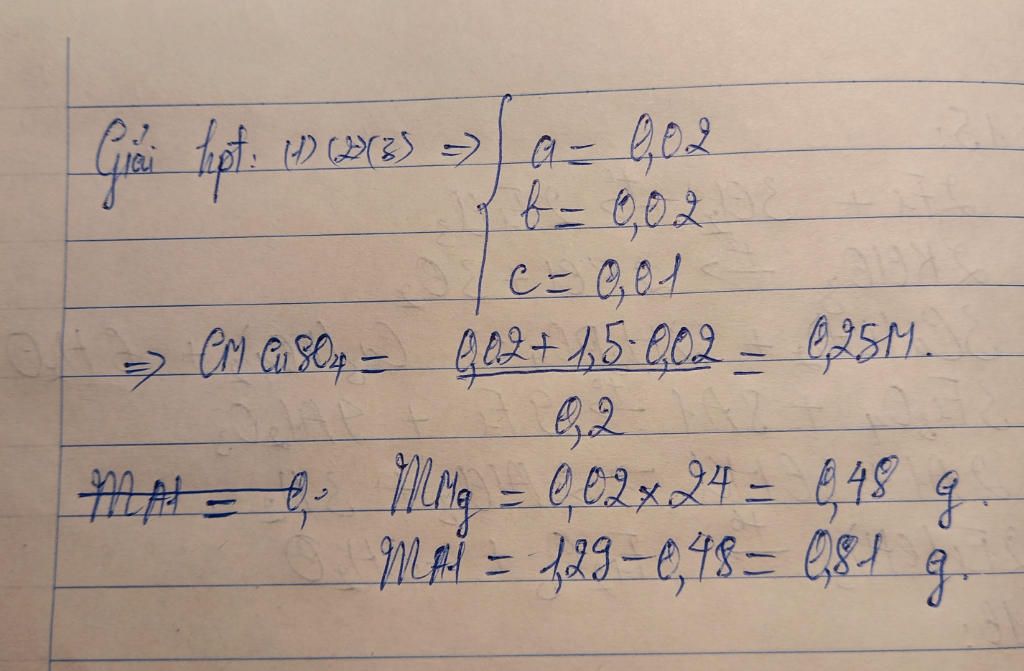 Giải hpt: (1) (2) (3) => { a = 0,02
b = 0,02
c = 0,01
=> CM CuSO4 = (0,02 + 1,5 . 0,02) / 0,2 = 0,25M.
mAl = 0, mMg = 0,02 x 24 = 0,48 g.
mAl = 1,29 - 0,48 = 0,81 g.